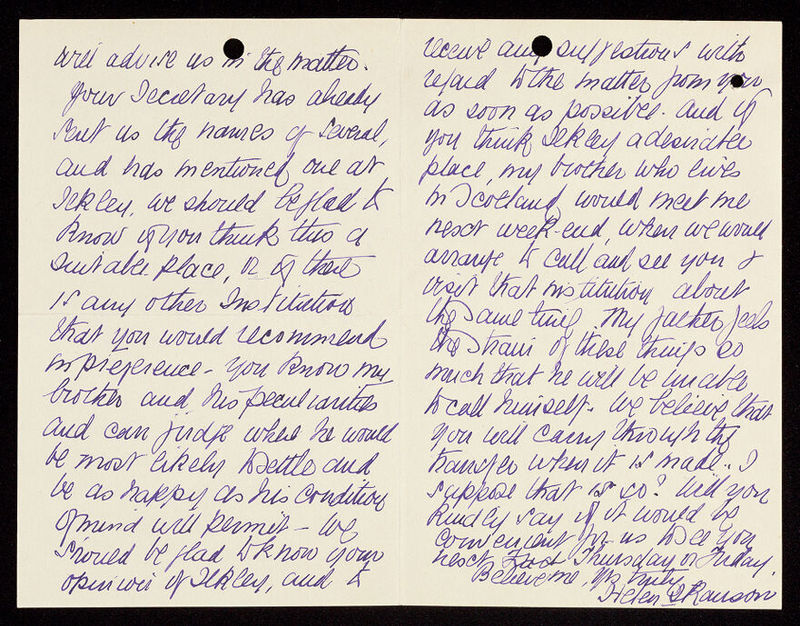 will advise us in the matter.
Your Secretary has already
sent us the names of several,
and has mentioned one at
Ilkley, we should be glad to
know if you think this a
suitable place, or if there
is any other Institution
that you would recommend
in preference - You know my
brother and his peculiarities
and can judge where he would
be most likely to settle and
be as happy as his condition
of mind will permit - We
should be glad to know your
opinion of Ilkley, and to
receive any suggestions with
regard to the matter from you
as soon as possible. And if
you think Ilkley a desirable
place, my brother who lives
in Scotland would meet me
next week-end, when we would
arrange to call and see you &
visit that institution about
the same time. My father feels
the strain of these things so
much that he will be unable
to call himself. We believe that
you will carry through the
transfer when it is made. I
suppose that is so? Will you
kindly say if it would be
convenient for us to see you
next Thursday or Friday.
Believe me, yrs truly
Helen Ranson